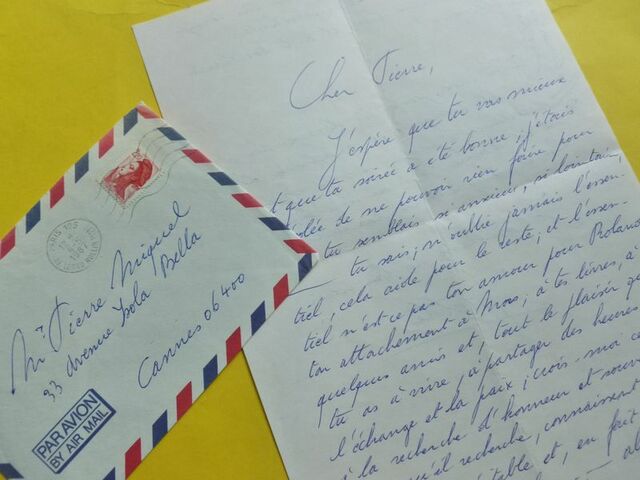 PARIS 105
Mr Pierre Miquel
33 avenue Isola Bella
Cannes 06400
PAR AVION
BY AIR MAIL
Cher Pierre,
J'espère que tu vas mieux
t que ta soirée a été bonne ; j'étais
olée de ne pouvoir rien faire pour
tu semblais si anxieux, si lointain,
— tu sais ; n'oublie jamais l'essen-
tiel, cela aide pour le reste, et l'essen-
tiel n'est-ce pas ton amour pour Roland
ton attachement à Mros, à tes livres, à
quelques amis et, tout le plaisir que
tu as à vivre, à partager des heures
l'échange et la paix ; crois-moi ce
à la recherche d'honneur et souv
qu'il recherche, connaissent
éritable et, en fait
— al